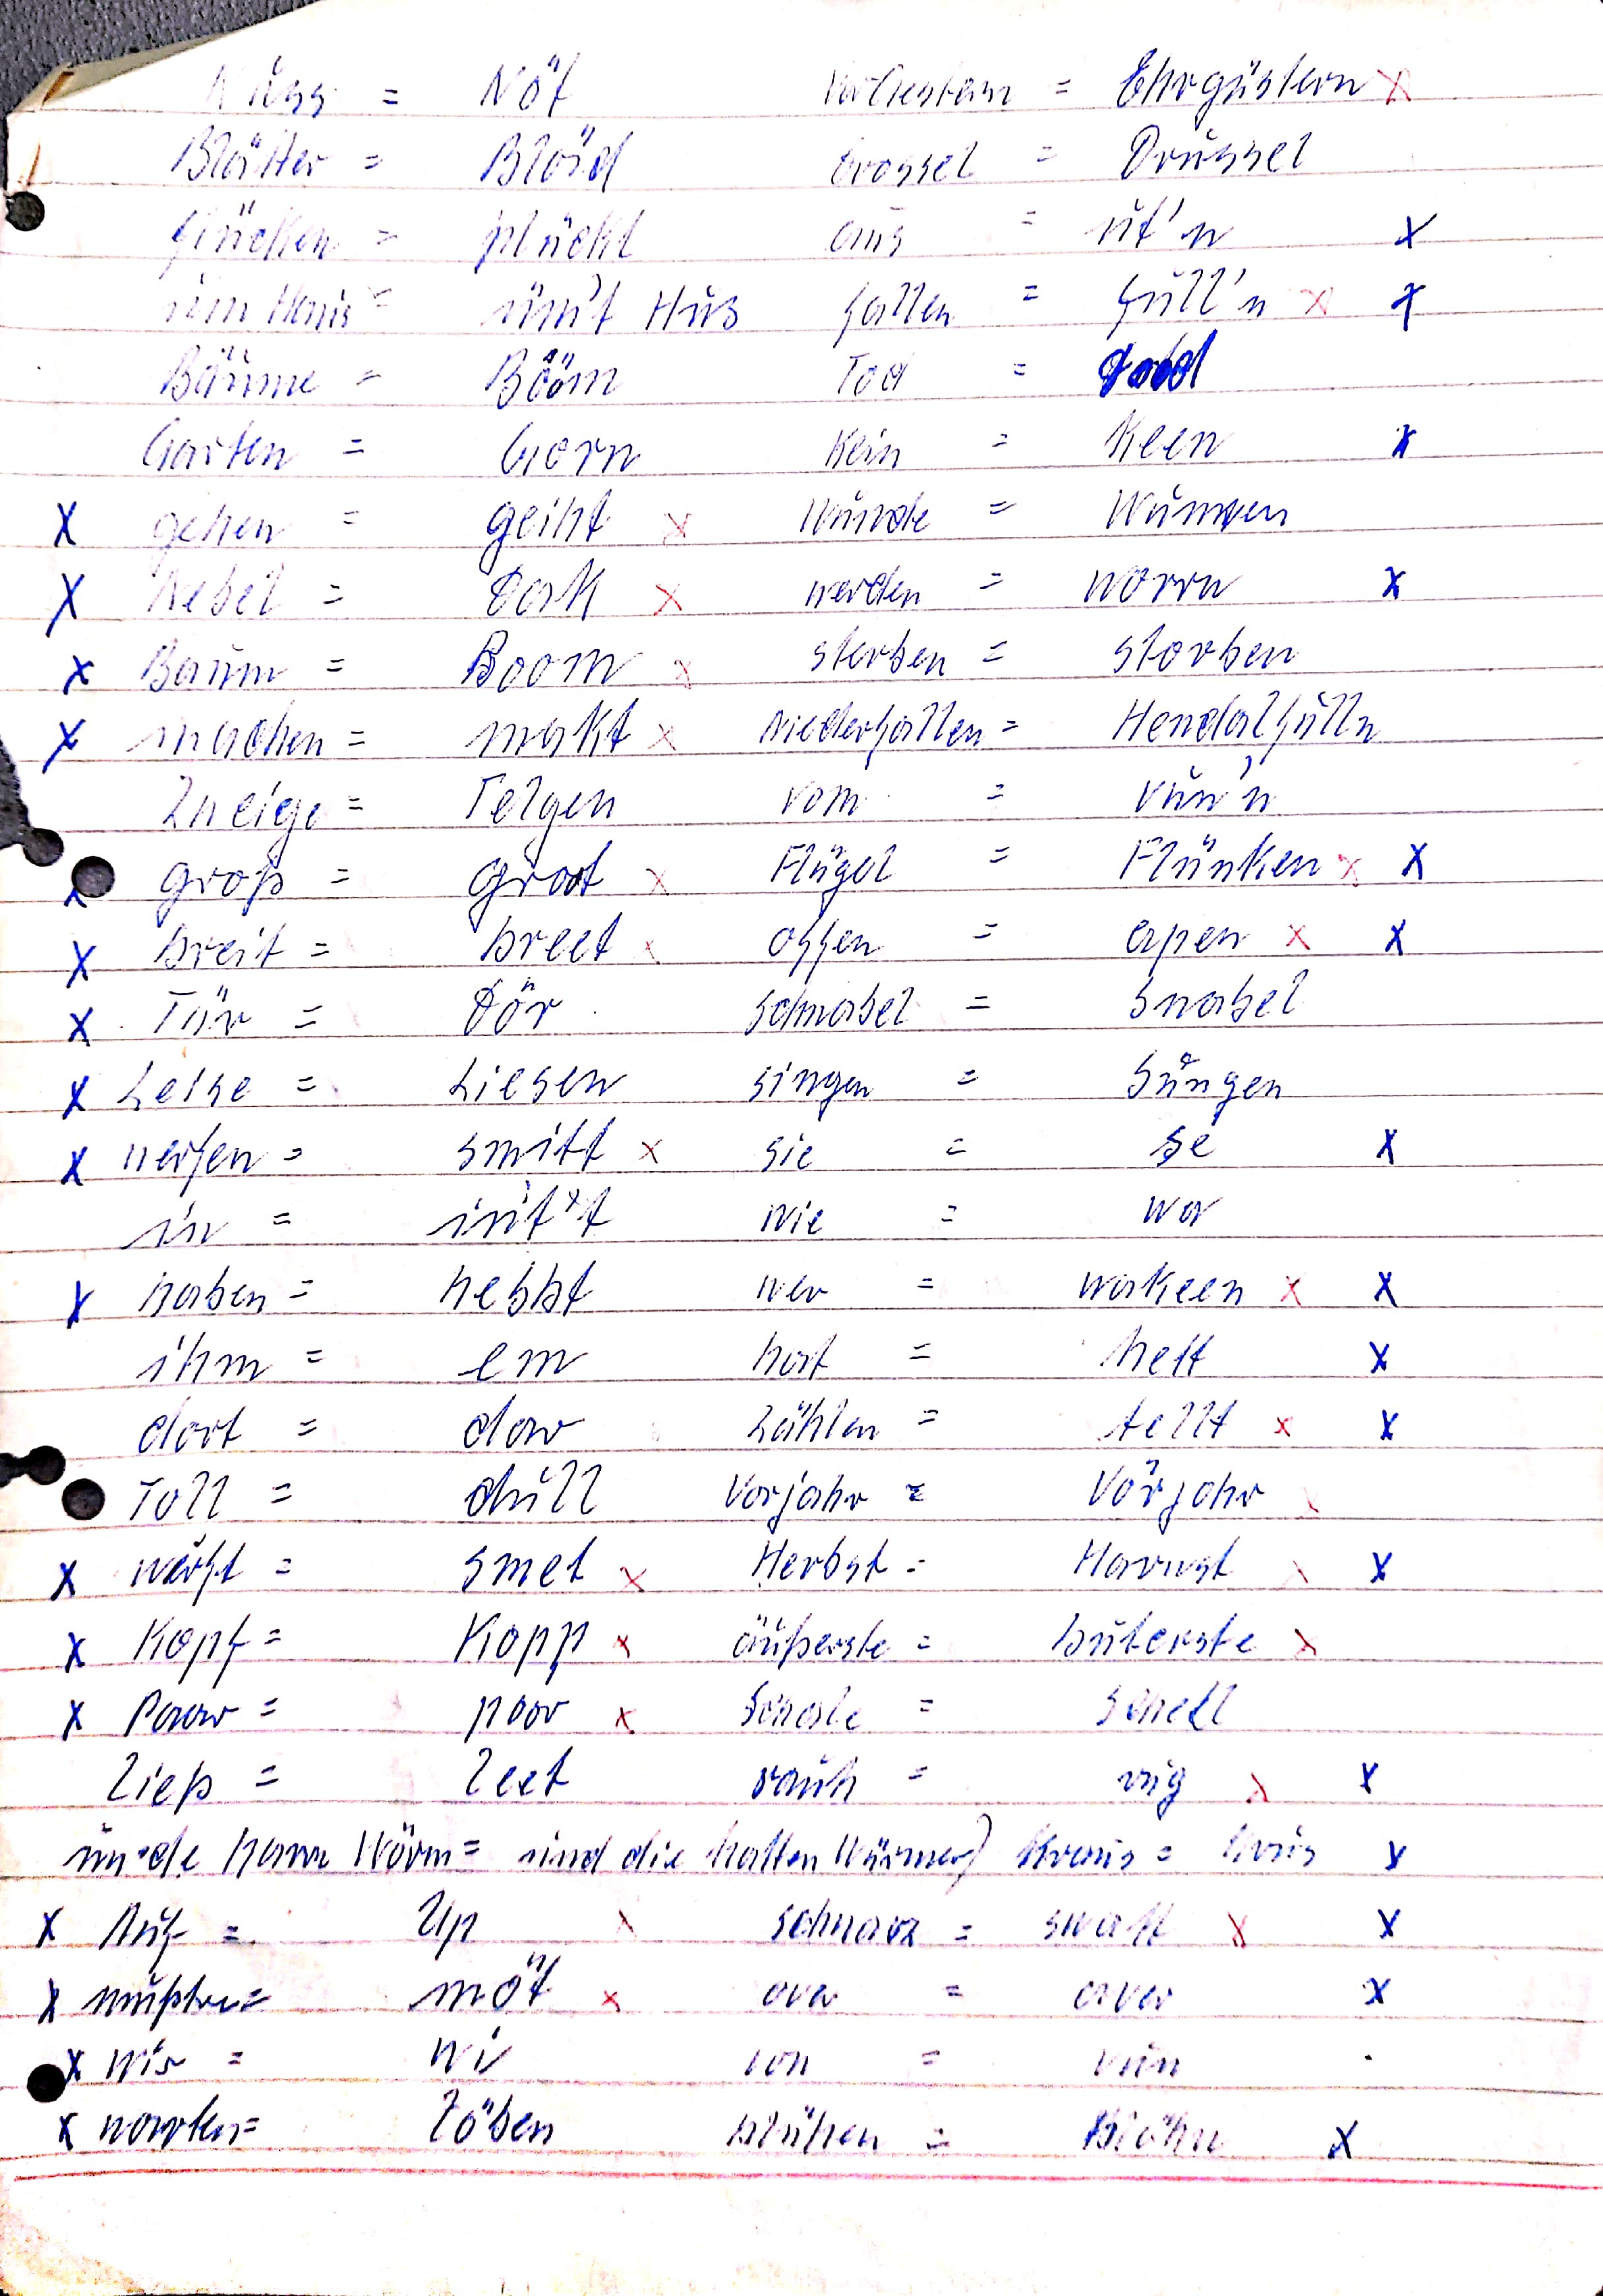 Nüss = Nöt = Ehrgüstern x
Blätter = Blöd Drossel = Drussel
pflücken = plückt aus = ut'n x
um Haus = üm't Hus fallen = full'n x x
Bäume = Bööm Tod =
Garten = Gorn Kein = Keen x
x gehen = geiht x Wunde = Wunnen
x Nebel = Dak x werden = worrn x
x Baum = Boom x sterben = storben
x machen = makt x Niederfallen = Hendalfulln
Zweige = Telgen vom = vun'n
x groß = groot x Flügel = Flünken x x
x breit = breet x offen = apen x x
x Tür = Dör Schnabel = Snabel
x Leise = Liesen singen = Süngen
x werfen = smitt x sie = se x
in = init't wie = wo
x haben = hebbt wer = wokeen x x
ihm = em hat = hett x
dort = dor zählen = tellt x x
Toll = dull Vorjahr = Vörjohr x
x wirft = smet x Herbst = Harvst x x
x Kopf = Kopp x äußerste = buterste x
x Paar = poor x Schale = Schell
ließ = leet rauh = rug x x
un de harr Wörm = und die hatten Würmer) Kraus = krus x
x Auf = Up x schwarz = swatt x x
x mußten = möt x aber = aver x
x wir = wi von = vun
x warten = töben blühen = Blöhn x